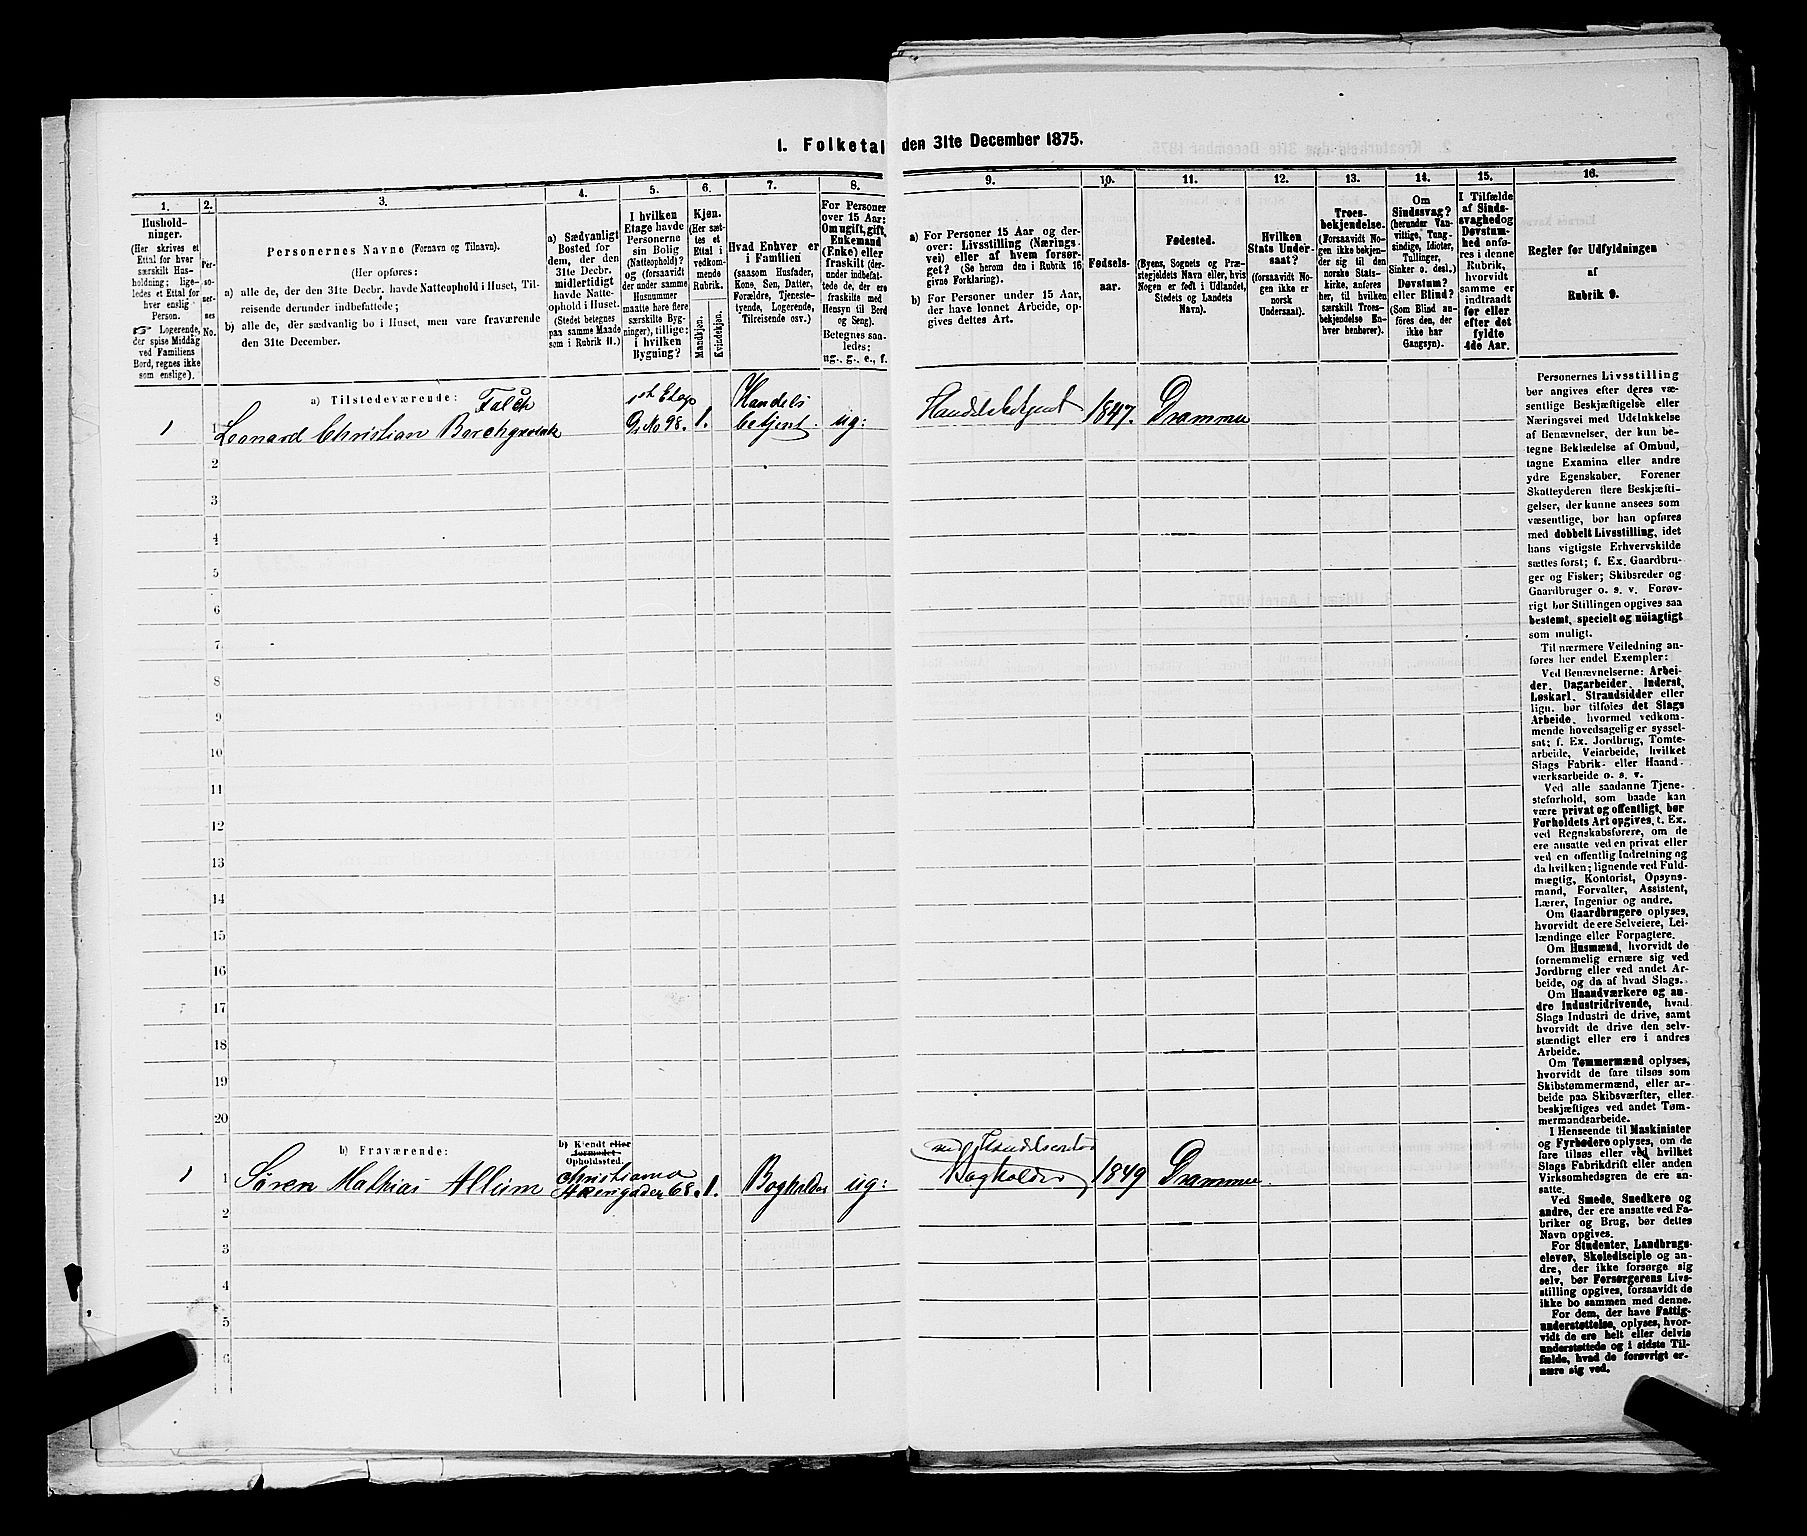 1. Folketal den 31te December 1875.
1.
Hushold-
ninger.
(Her skrives et
Ettal for hver
særskilt Hus-
holdning; lige-
ledes et Ettal for
hver enslig
Person.
☞ Logerende,
der spise Middag
ved Familiens
Bord, regnes ikke
som enslige).
2.
Per-
so-
ner-
nes
No.
3.
Personernes Navne (Fornavn og Tilnavn).
(Her opføres:
a) alle de, der den 31te Decbr. havde Natteophold i Huset, Til-
reisende derunder indbefattede;
b) alle de, der sædvanlig bo i Huset, men vare fraværende
den 31te December.
4.
a) Sædvanligt
Bosted for
dem, der den
31te Decbr.
midlertidigt
havde Natte-
ophold i Huset.
(Stedet betegnes
paa samme Maade
som i Rubrik 11.)
5.
I hvilken
Etage havde
Personerne
sin Bolig
(Natteophold)?
og (forsaavidt
der under samme
Husnummer
maatte høre flere
særskilte Byg-
ninger), tillige:
i hvilken
Bygning?
6.
Kjøn.
(Her sæt-
tes et
Ettal i
vedkom-
mende
Rubrik.
Mandkjøn.
Kvindekjøn.
7.
Hvad Enhver er
i Familien
(saasom Husfader,
Kone, Søn, Datter,
Forældre, Tjeneste-
tyende, Logerende,
Tilreisende osv.)
8.
For Personer
over 15 Aar:
Om ugift, gift,
Enkemand
(Enke) eller
fraskilt (der-
under indbefat-
tede de, der ere
fraskilte med
Hensyn til Bord
og Seng).
Betegnes saa-
ledes:
ug., g., e., f.
9.
a) For Personer 15 Aar og der-
over: Livsstilling (Nærings-
vei) eller af hvem forsør-
get? (Se herom den i Rubrik 16
givne Forklaring).
b) For Personer under 15 Aar,
der have lønnet Arbeide, op-
gives dettes Art.
10.
Fødsels-
aar.
11.
Fødested.
(Byens, Sognets og Præ-
stegjeldets Navn eller, hvis
Nogen er født i Udlandet,
Stedets og Landets
Navn).
12.
Hvilken
Stats Under-
saat?
(forsaavidt No-
gen ikke er
norsk
Undersaat).
13.
Troes-
bekjendelse.
(Forsaavidt No-
gen ikke bekjen-
der sig til den
norske Stats-
kirke, anføres
her, til hvilken
særskilt Troes-
bekjendelse En-
hver henhører).
14.
Om
Sindssvag?
(herunder Van-
vittige, Tung-
sindige, Idioter,
Tullinger,
Sinker o. desl.)
Døvstum?
eller Blind?
(Som Blind an-
føres den, der
ikke har
Gangsyn).
15.
I Tilfælde
af Sinds-
svaghed og
Døvstum-
hed anfø-
res i denne
Rubrik,
hvorvidt
samme er
indtraadt
før eller
efter det
fyldte
4de Aar.
16.
Regler for Udfyldningen
af
Rubrik 9.
a) Tilstedeværende:
Falck
1 1 Leonard Christian Borchgrevink
1st Etage
G. No 98. 1. Handels
betjent. ug: Handelsbetjent 1847. Drammen
2
3
4
5
6
7
8
9
10
11
12
13
14
15
16
17
18
19
20
b) Fraværende:
b) Kjendt eller
formodet
Opholdssted.
1 1 Søren Mathias Allum
Christiania
Akersgaden 68. 1. Bogholder ug:
ved Handelscontor
Bogholder 1849 Drammen
2
3
4
5
6
Personernes Livsstilling
bør angives efter deres væ-
sentlige Beskjæftigelse eller
Næringsvei med Udelukkelse
af Benævnelser, der kun be-
tegne Beklædelse af Ombud,
tagne Examina eller andre
ydre Egenskaber. Forener
Skatteyderen flere Beskjæfti-
gelser, der kunne ansees som
væsentlige, bør han opføres
med dobbelt Livsstilling, idet
hans vigtigste Erhvervskilde
sættes først; f. Ex. Gaardbru-
ger og Fisker; Skibsreder og
Gaardbruger o. s. v. Forøv-
rigt bør Stillingen opgives saa
bestemt, specielt og nöiagtigt
som muligt.
Til nærmere Veiledning an-
føres her endel Exempler:
Ved Benævnelserne: Arbei-
der, Dagarbeider, Inderst,
Løskarl, Strandsidder eller
lign. bør tilføies det Slags
Arbeide, hvormed vedkom-
mende hovedsagelig er syssel-
sat; f. Ex. Jordbrug, Tomte-
arbeide, Veiarbeide, hvilket
Slags Fabrik- eller Haand-
værksarbeide o. s. v.
Ved alle saadanne Tjene-
steforhold, som baade kan
være privat og offentligt, bør
Forholdets Art opgives, t. Ex.
ved Regnskabsførere, om de
ere ansatte ved en privat eller
ved en offentlig Indretning og
da hvilken; lignende ved Fuld-
mægtig, Kontorist, Opsyns-
mand, Forvalter, Assistent,
Lærer, Ingeniør og andre.
Om Gaardbrugere oplyses,
hvorvidt de ere Selveiere, Lei-
lændinge eller Forpagtere.
Om Husmænd, hvorvidt de
fornemmelig ernære sig ved
Jordbrug eller ved andet Ar-
beide, og da af hvad Slags.
Om Haandværkere og an-
dre Industridrivende, hvad
Slags Industri de drive, samt
hvorvidt de drive den selv-
stændigt eller ere i andres
Arbeide.
Om Tømmermænd oplyses,
hvorvidt de fare tilsøs som
Skibstømmermænd, eller ar-
beide paa Skibsværfter, eller
beskjæftiges ved andet Tøm-
mermandsarbeide.
I Henseende til Maskinister
og Fyrbødere oplyses, om de
fare tilsøs eller ved hvilket
Slags Fabrikdrift eller anden
Virksomhedsgren de ere an-
satte.
Ved Smede, Snedkere og
andre, der ere ansatte ved Fa-
briker og Brug, bør dettes
Navn opgives.
For Studenter, Landbrugs-
elever, Skoledisciple og an-
dre, der ikke forsørge sig
selv, bør Forsørgerens Livs-
stilling opgives, forsaavidt de
ikke bo sammen med denne.
For dem, der have Fattig-
understøttelse, oplyses, hvor-
vidt de ere helt eller delvis
understøttede og i sidste Til-
fælde, hvad de forøvrigt er-
nære sig ved.